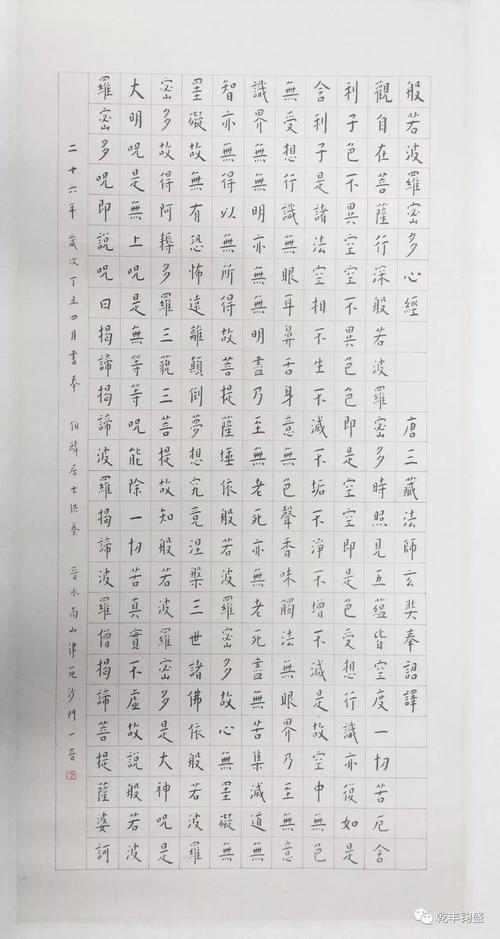 般若波羅密多心經　唐三藏法師玄奘奉詔譯
觀自在菩薩行深般若波羅密多時照見五蘊皆空度一切苦厄舍
利子色不異空空不異色色即是空空即是色受想行識亦復如是
舍利子是諸法空相不生不滅不垢不淨不增不減是故空中無色
無受想行識無眼耳鼻舌身意無色聲香味觸法無眼界乃至無意
識界無無明亦無無明盡乃至無老死亦無老死盡無苦集滅道無
智亦無得以無所得故菩提薩埵依般若波羅密多故心無罣礙無
罣礙故無有恐怖遠離顛倒夢想究竟涅槃三世諸佛依般若波羅
密多故得阿耨多羅三藐三菩提故知般若波羅密多是大神呪是
大明呪是無上呪是無等等呪能除一切苦真實不虛故說般若波
羅密多呪即說呪曰揭諦揭諦波羅揭諦波羅僧揭諦菩提薩婆訶
二十六年　歲次丁丑四月書奉　伯麟居士供養　晉水南山律苑沙門一音
乾丰钧盛